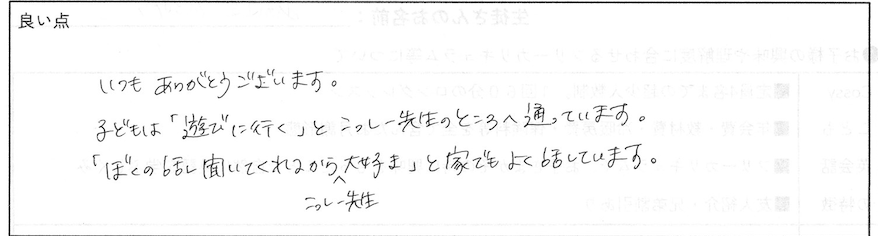 良い点
いつも ありがとうございます。
子どもは「遊びに行く」と こっしー先生のところへ通っています。
「ぼくの話し聞いてくれるから大好き」と家でもよく話しています。
こっしー先生